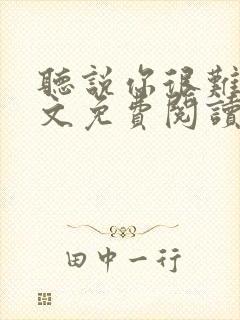 聽說你很難
文免費閱讀
田中一行